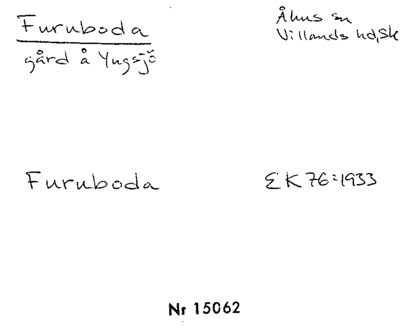 Furuboda
gård å Yngsjö
Åhus sn
Villands hd, Sk
Furuboda
EK 76:1933
Nr 15062